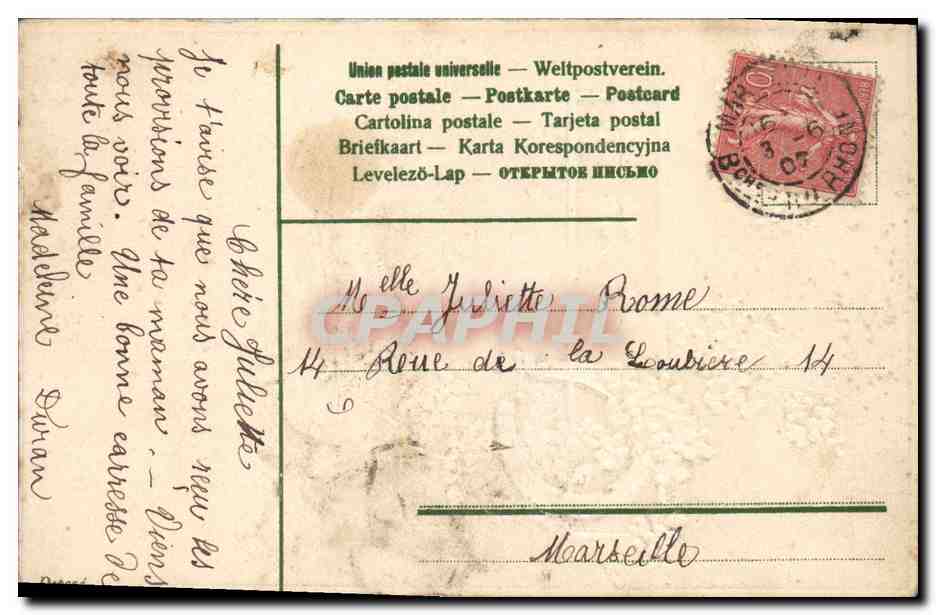 Chère Juliette
Je t'avise que nous avons reçu les
provisions de ta maman. — Viens
nous voir. Une bonne carresse de
toute la famille
Madeleine Duran
Union postale universelle — Weltpostverein.
Carte postale — Postkarte — Postcard
Cartolina postale — Tarjeta postal
Briefkaart — Karta Korespondencyjna
Levelezö-Lap — ОТКРЫТОЕ ПИСЬМО
Melle Juliette Rome
14 Rue de la Loubiere 14
Marseille
CPAPHIL
10
6 6
3 07
RHONE